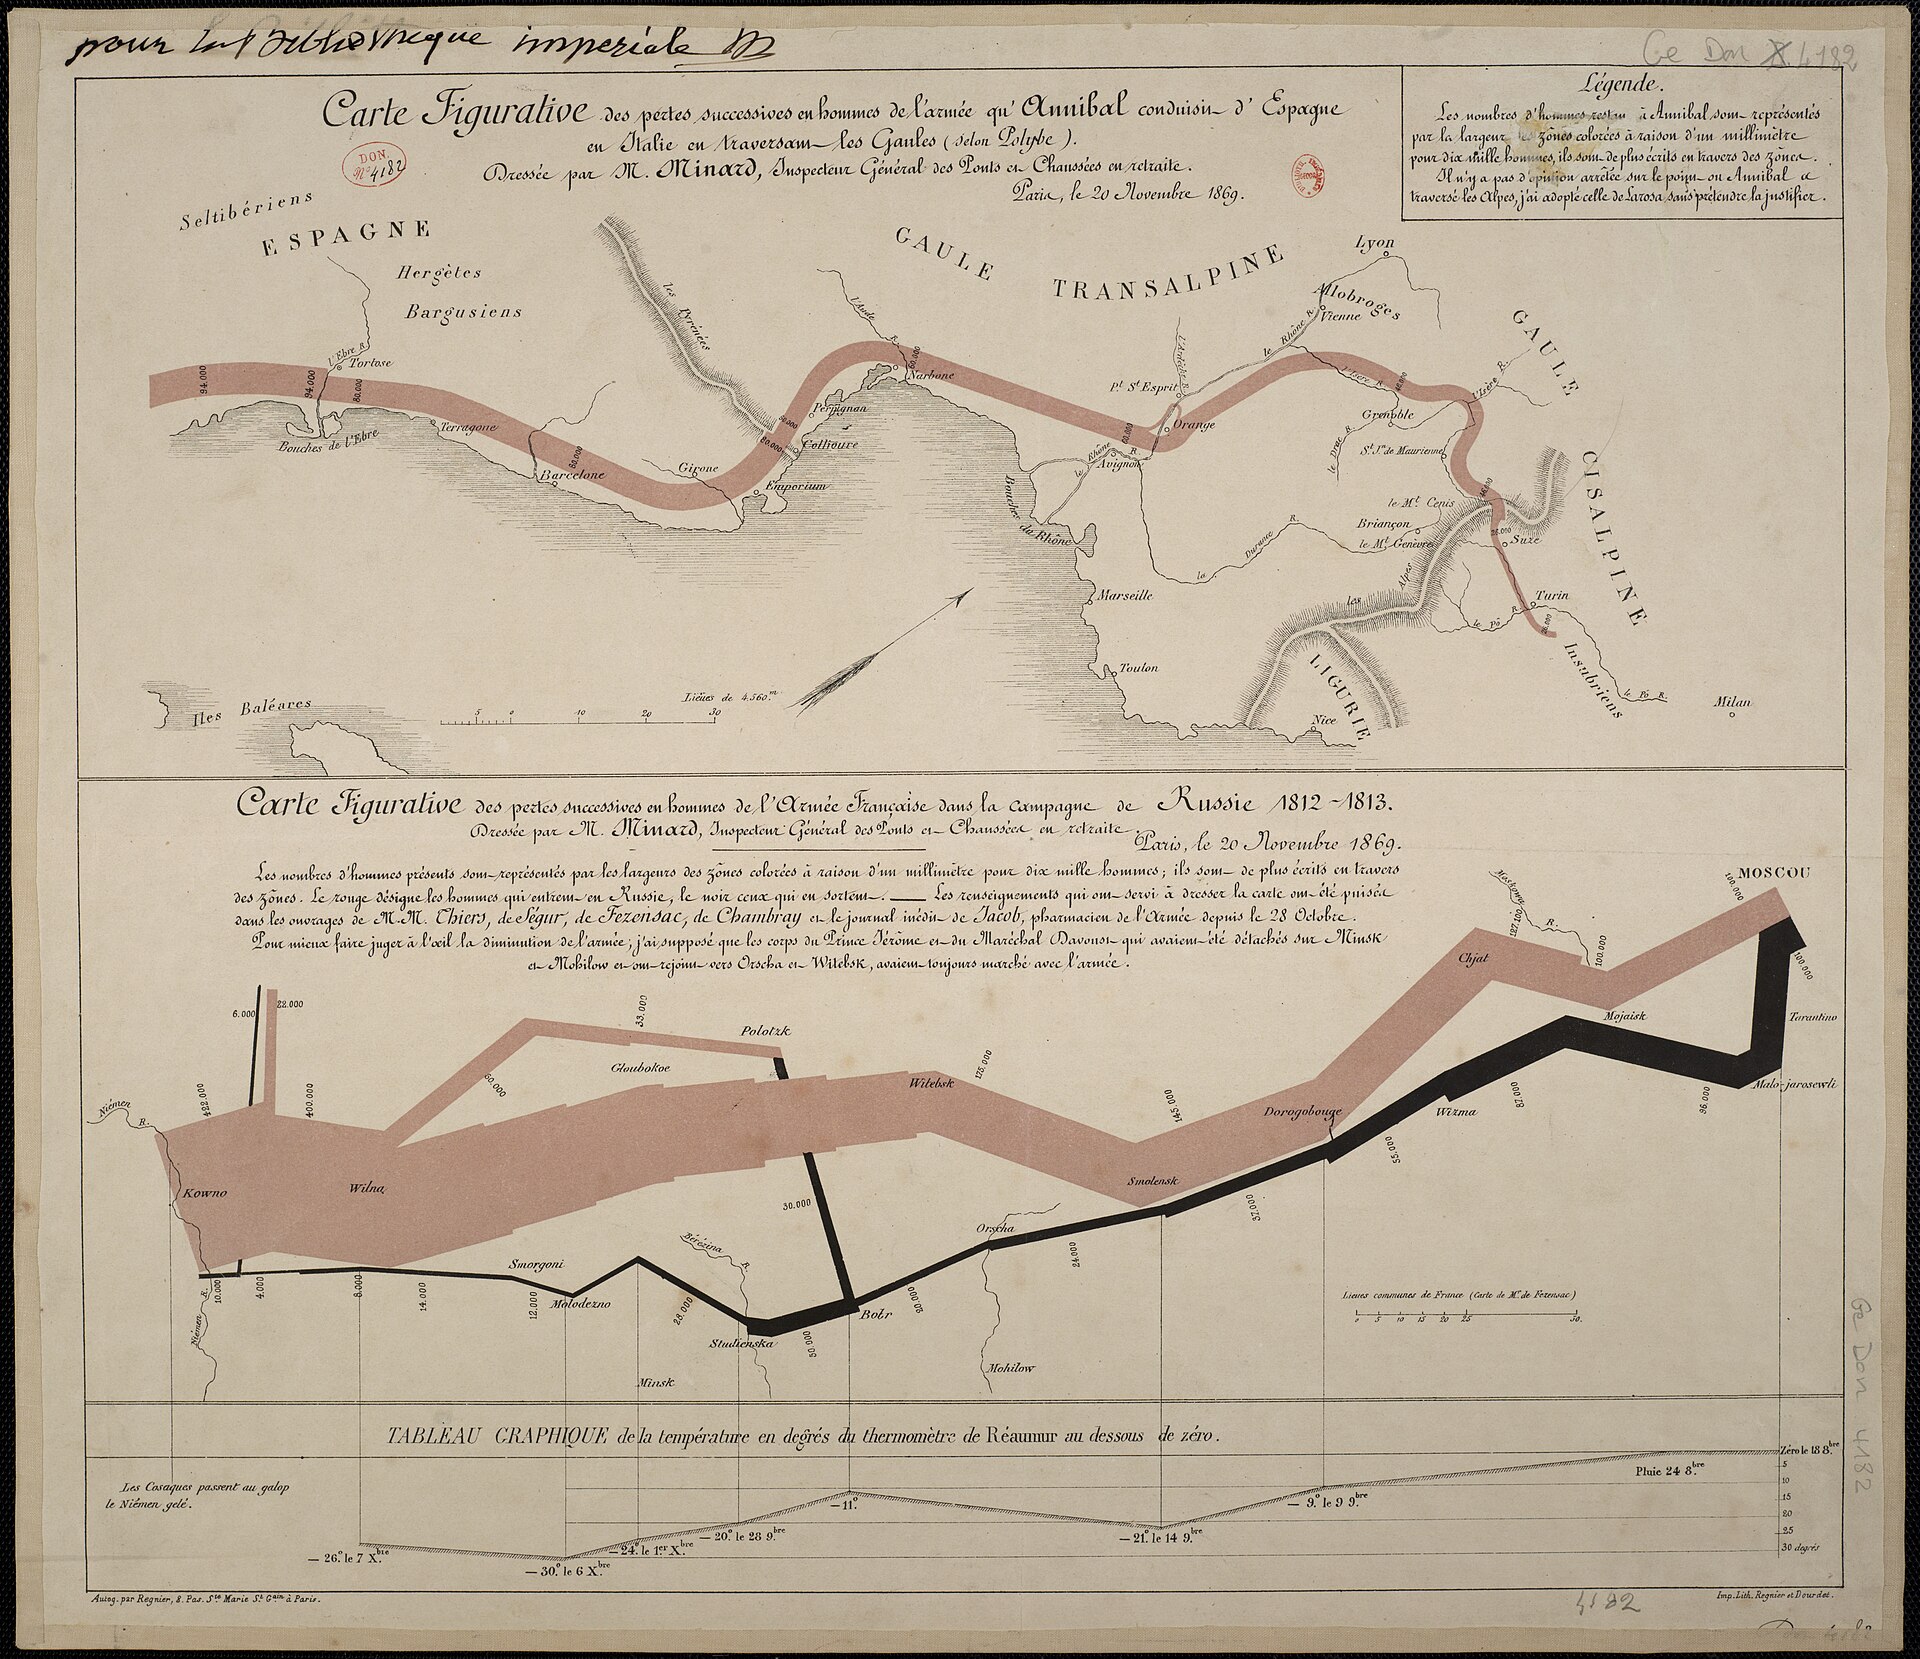 pour la Bibliothèque impériale M
Ge Don 4182
Carte Figurative des pertes successives en hommes de l'armée qu'Annibal conduisit d'Espagne
en Italie en traversant les Gaules (selon Polybe).
Dressée par M. Minard, Inspecteur Général des Ponts et Chaussées en retraite.
Paris, le 20 Novembre 1869.
DON.
No 4182
Légende.
Les nombres d'hommes restant à Annibal sont représentés
par la largeur des zônes colorées à raison d'un millimètre
pour dix mille hommes, ils sont de plus écrits en travers des zônes.
Il n'y a pas d'opinion arrêtée sur le point où Annibal a
traversé les Alpes, j'ai adopté celle de Larosa, sans prétendre la justifier.
Seltibériens
ESPAGNE
Hergètes
Bargusiens
les Pyrénées
GAULE TRANSALPINE
Lyon
Allobroges
Vienne
le Rhône R.
GAULE CISALPINE
l'Aude R.
l'Ardèche R.
l'Ebre R.
Tortose
94.000
94.000
80.000
Bouches de l'Ebre
Terragone
Barcelone
80.000
Girone
Emporium
60.000
50.000
Collioure
Perpignan
Narbone
60.000
Pt. St. Esprit
Orange
60.000
Avignon
le Rhône R.
Bouches du Rhône
l'Isère R.
46.000
l'Isère R.
Grenoble
le Drac R.
St. Jn. de Maurienne
le Mt. Cenis
Briançon
le Mt. Genèvre
la Durance R.
26.000
Suze
les Alpes
Turin
le Pô R.
26.000
Insubriens
le Pô R.
Milan
Marseille
Toulon
LIGURIE
Nice
Iles Baléares
Lieues de 4.560m
5 0 10 20 30
Carte Figurative des pertes successives en hommes de l'Armée Française dans la campagne de Russie 1812-1813.
Dressée par M. Minard, Inspecteur Général des Ponts et Chaussées en retraite.
Paris, le 20 Novembre 1869.
Les nombres d'hommes présents sont représentés par les largeurs des zônes colorées à raison d'un millimètre pour dix mille hommes; ils sont de plus écrits en travers
des zônes. Le rouge désigne les hommes qui entrent en Russie, le noir ceux qui en sortent. — Les renseignements qui ont servi à dresser la carte ont été puisés
dans les ouvrages de M.M. Thiers, de Ségur, de Fezensac, de Chambray et le journal inédit de Jacob, pharmacien de l'Armée depuis le 28 Octobre.
Pour mieux faire juger à l'œil la diminution de l'armée, j'ai supposé que les corps du Prince Jérôme et du Maréchal Davoust qui avaient été détachés sur Minsk
et Mohilow et ont rejoint vers Orscha et Witebsk, avaient toujours marché avec l'armée.
MOSCOU
100.000
Moskowa R.
127.100
100.000
Chjat
Mojaisk
100.000
Tarantino
Malo-jarosewli
6.000
22.000
33.000
Polotzk
Gloubokoe
60.000
Witebsk
175.000
422.000
400.000
Niémen R.
145.000
Dorogobouge
Wizma
87.000
96.000
55.000
Kowno
Wilna
Smolensk
30.000
37.000
Orscha
24.000
Bérézina R.
Smorgoni
Molodezno
10.000
4.000
8.000
14.000
12.000
28.000
Studienska
50.000
Bobr
20.000
Niémen R.
Minsk
Mohilow
Lieues communes de France (Carte de Mr. de Fezensac)
0 5 10 15 20 25 50.
TABLEAU GRAPHIQUE de la température en degrés du thermomètre de Réaumur au dessous de zéro.
Les Cosaques passent au galop
le Niémen gelé.
Zéro le 18 8bre
5
10
15
20
25
30 degrés
Pluie 24 8bre
— 9° le 9 9bre
— 21° le 14 9bre
— 11°
— 20° le 28 9bre
— 24° le 1er Xbre
— 30° le 6 Xbre
— 26° le 7 Xbre
Autog. par Regnier, 8. Pas. Ste Marie St Gain à Paris.
Imp. Lith. Regnier et Dourdet.
Ge Don 4182
4182